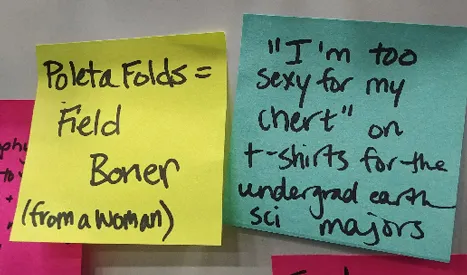 Poleta Folds =
Field
Boner
(from a woman)
"I'm too
sexy for my
chert" on
t-shirts for the
undergrad earth
sci majors